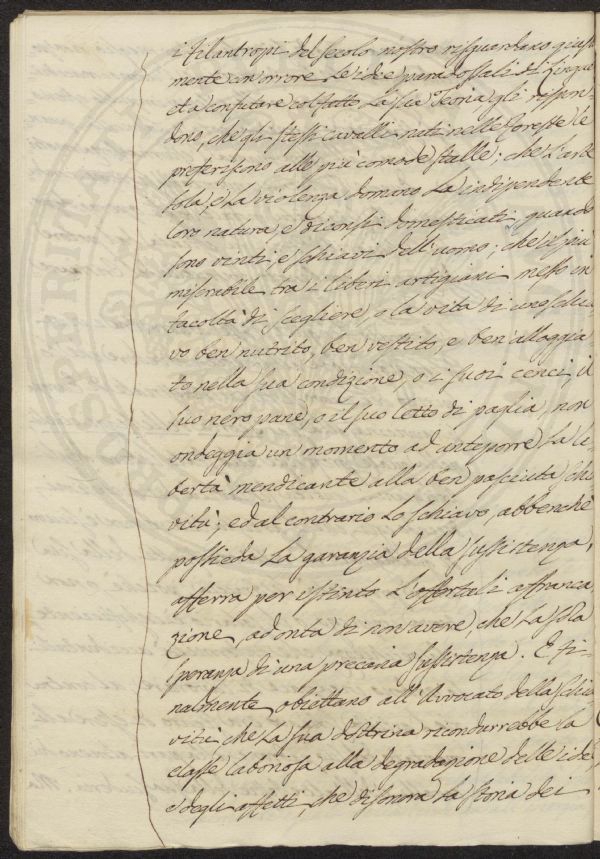 i Filantropi del secolo nostro risguardano giusta-
mente con orrore le idee paradossali di Linguet
et a confutare col fatto la sua Teoria gli rispon-
dono, che gli stessi cavalli nati nelle foreste le
preferiscono alle più comode stalle; che l'arte
sola, e la violenza domano la indipendente
loro natura, e diconsi domesticati, quando
sono vinti, e schiavi dell'uomo; che il più
miserabile tra i liberi artigiani messo in
facoltà di scegliere, o la vita di uno schia-
vo ben nutrito, ben vestito, e ben alloggia-
to nella sua condizione, o i suoi cenci, il
suo nero pane, o il suo letto di paglia, non
ondeggia un momento ad anteporre la li-
bertà mendicante alla ben pasciuta schia-
vitù; ed al contrario lo schiavo, abbenché
possieda la garanzia della sussistenza,
afferra per istinto l'offertali affranca-
zione, ad onta di non avere, che la sola
speranza di una precaria sussistenza. E fi-
nalmente obiettano all'Avvocato della schia-
vitù che la sua dottrina ricondurrebbe la
classe laboriosa alla degradazione delle idee,
e degli affetti, che disonora la storia dei